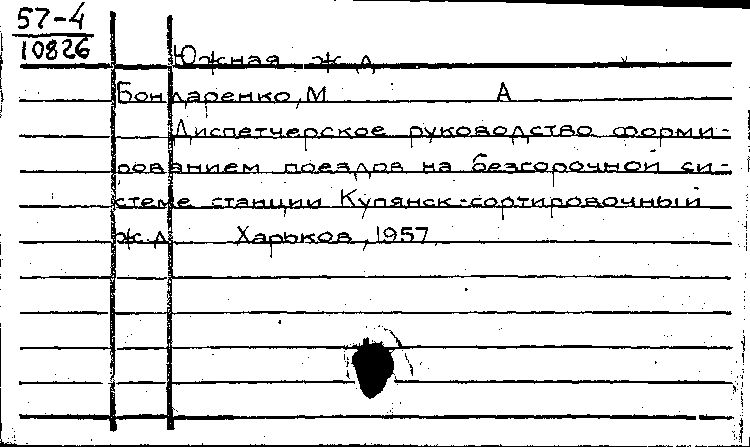 57-4
10826
Южная ж д
Бондаренко, М А
Диспетчерское руководство форми-
рованием поездов на безгорочной си-
стеме станции Купянск-сортировочный
ж.д Харьков, 1957